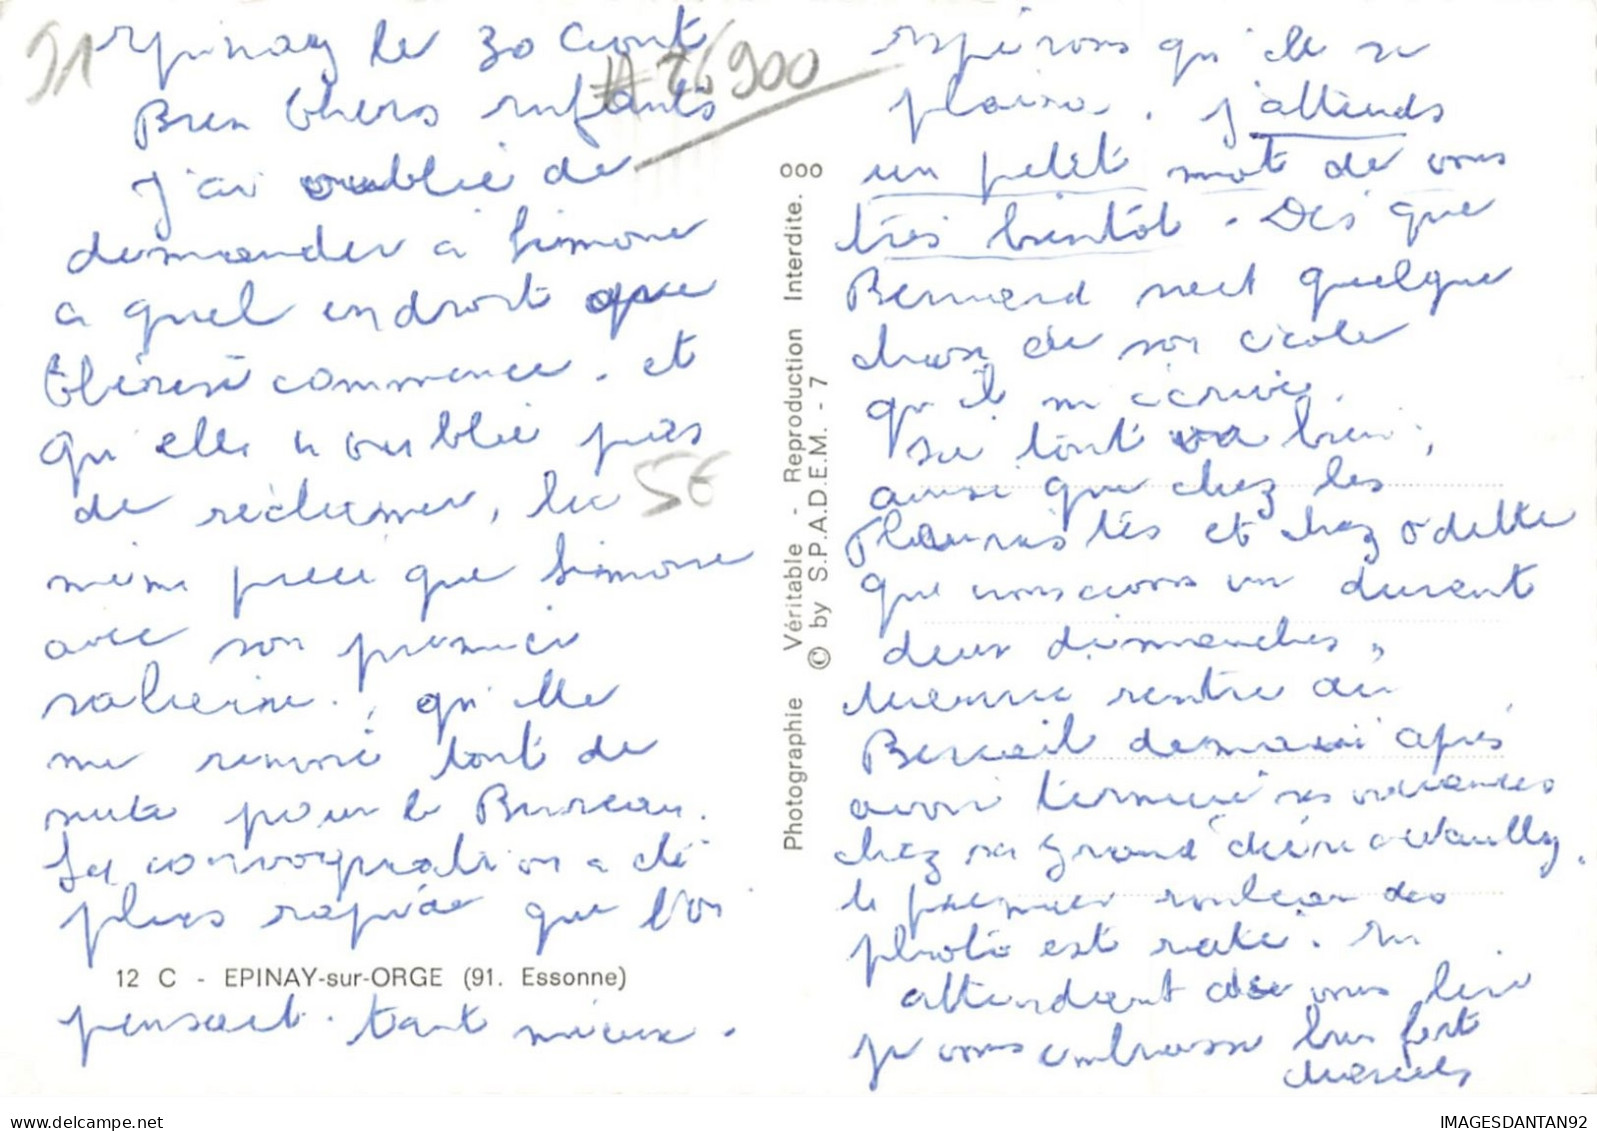 91
Epinay le 30 Aout
#26900
Bien chers enfants
J'ai oublié de
demander a Simone
a quel endroit que
Thérèse commence. et
qu'elle n'oublie pas
de réclamer, la
5€
même place que Simone
avec son premier
salaire. qu'elle
me renvoie tout de
suite pour le Bureau.
La convoquation a été
plus rapide que l'on
12 C - EPINAY-sur-ORGE (91. Essonne)
pensait. tant mieux.
Photographie Véritable - Reproduction Interdite.
© by S.P.A.D.E.M. - 7
espérons qu'elle se
plaise. J'attends
un petit mot de vous
très bientôt. Dès que
Bernard sect quelque
chose de son école
qu'il m'écrive.
Ici tout va bien,
ainsi que chez les
et chez Odette
que nous avons vu durant
deux dimanches,
rentre au
demain après
avoir terminé ses vacances
chez sa grand'mère a
le premier rouleau des
photo est raté. En
attendant de vous lire
je vous embrasse bien fort